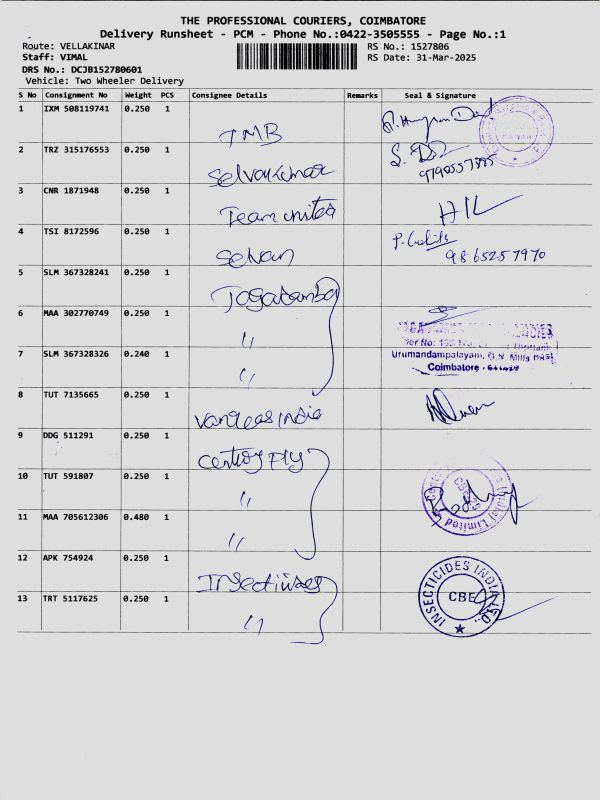 THE PROFESSIONAL COURIERS, COIMBATORE
Delivery Runsheet - PCM - Phone No.:0422-3505555 - Page No.:1
Route: VELLAKINAR
RS No.: 1527806
Staff: VIMAL
RS Date: 31-Mar-2025
DRS No.: DCJB152780601
Vehicle: Two Wheeler Delivery
S No Consignment No Weight PCS Consignee Details Remarks Seal & Signature
1 IXM 508119741 0.250 1 TMB
2 TRZ 315176553 0.250 1 Selvakumar
3 CNR 1871948 0.250 1 Team united
4 TSI 8172596 0.250 1 Selvan 9865257970
5 SLM 367328241 0.250 1 Jagatamba
6 MAA 302770749 0.250 1 "
7 SLM 367328326 0.240 1 "
Urumandampalayam, G.N. Mills Post
Coimbatore
8 TUT 7135665 0.250 1 India
9 DDG 511291 0.250 1 Century Ply
10 TUT 591807 0.250 1 "
(India) Limited
CBE
11 MAA 705612306 0.480 1 "
12 APK 754924 0.250 1 Insecticides
13 TRT 5117625 0.250 1 "
INSECTICIDES INDIA LTD.
CBE